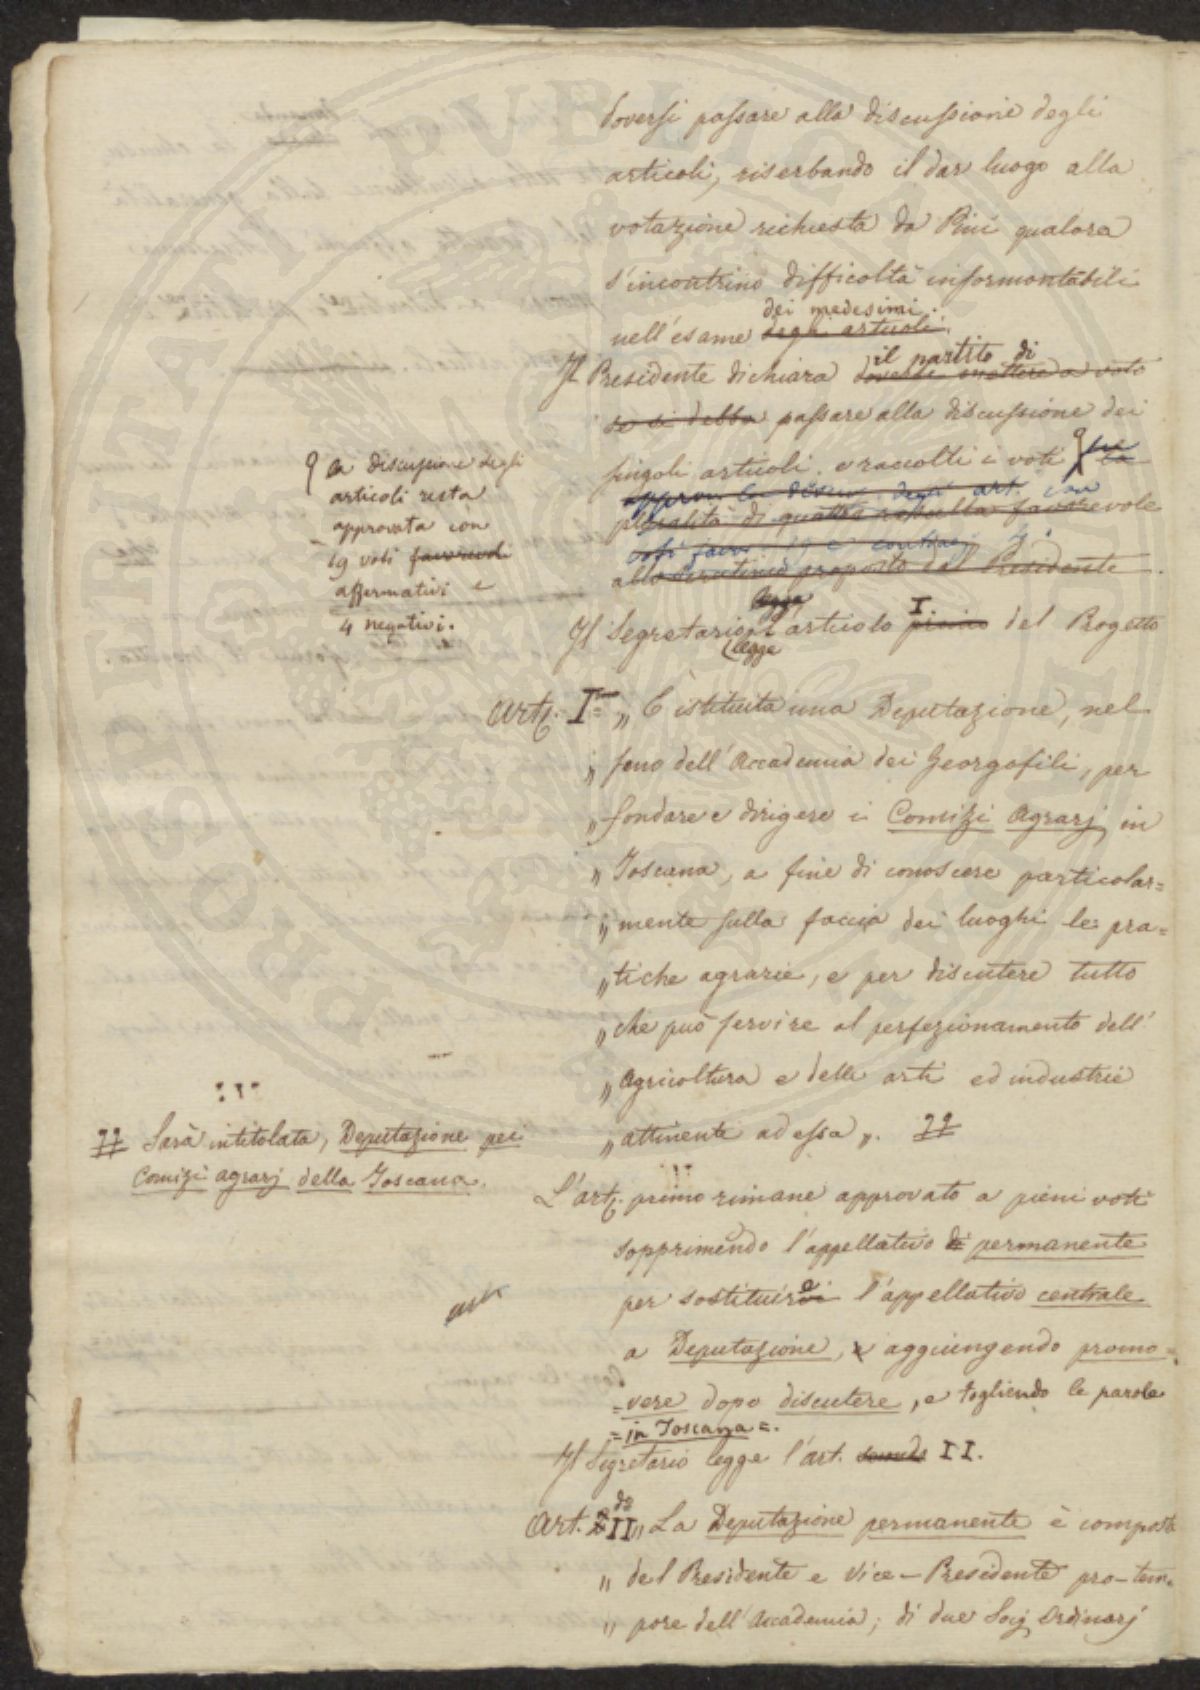 doversi passare alla discussione degli
articoli, riserbando il dar luogo alla
votazione richiesta da Pini qualora
s'incontrino difficoltà insormontabili
dei medesimi.
nell'esame degli articoli.
il partito di
Il Presidente dichiara doversi mettere a voti
se si debba passare alla discussione dei
singoli articoli. e raccolti i voti
approv. la discus. degli art. con
pluralità di quattro favorevole
voti favor. 19 e contrarj 4.
allo scrutinio proposto dal Presidente.
la discussione degli
articoli resta
approvata con
19 voti favorevoli
affermativi e
4 negativi.
legge
Il Segretario l'articolo primo I del Progetto
legge
Art. I „ È istituita una Deputazione, nel
„ seno dell'Accademia dei Georgofili, per
„ fondare e dirigere i Comizi Agrarj in
„ Toscana, a fine di conoscere particolar=
„ mente sulla faccia dei luoghi le pra=
„ tiche agrarie, e per discutere tutto
„ che può servire al perfezionamento dell'
„ Agricoltura e delle arti ed industrie
„ attinente ad essa „.
Sarà intitolata, Deputazione pei
Comizi agrarj della Toscana.
L'art. primo rimane approvato a pieni voti
sopprimendo l'appellativo di permanente
per sostituire l'appellativo centrale
a Deputazione, e aggiungendo promo=
=vere dopo discutere, e togliendo le parole
=in Toscana=.
Il Segretario legge l'art. secondo II.
Art. II do „ La Deputazione permanente è composta
„ del Presidente e Vice-Presidente pro-tem=
„ pore dell'Accademia; di due Socj Ordinarj